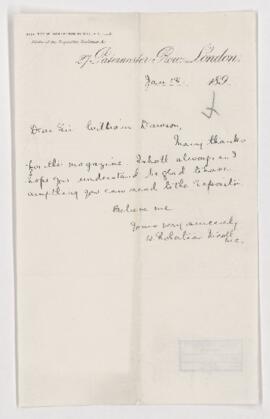 27, Paternoster Row, London.
Jan 189
4
Dear Sir William Dawson,
Many thanks
for the magazine. I shall always, as I
hope you understand be glad to have
anything you can send to the Expositor.
Believe me
Yours very sincerely
W Robertson Nicoll